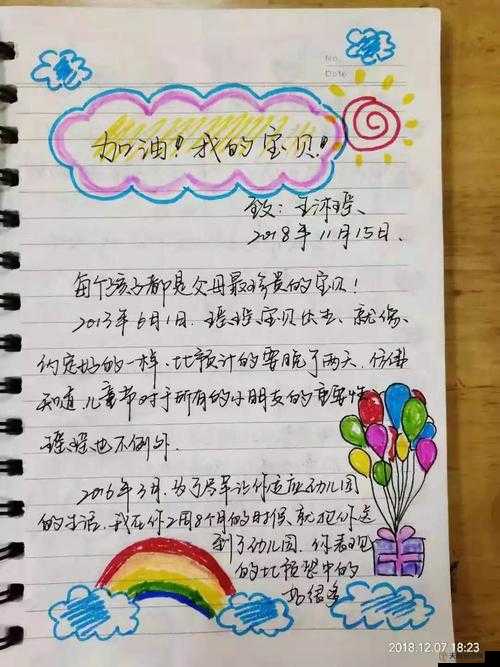 No.
Date
加油！我的宝贝！
致：王沛瑶、
2018年11月15日.
每个孩子都是父母最珍贵的宝贝！
2013年6月1日.瑶瑶宝贝出生、就像、
约定好的一样、比预计的要晚了两天.仿佛
知道.儿童节对于所有的小朋友的重要性
瑶瑶也不例外.
2016年3月.为了尽早让你适应幼儿园
的生活.我在你2周8个月的时候、就把你送
到了幼儿园、你表现
的比预想中的
好很多
2018.12.07 18:23